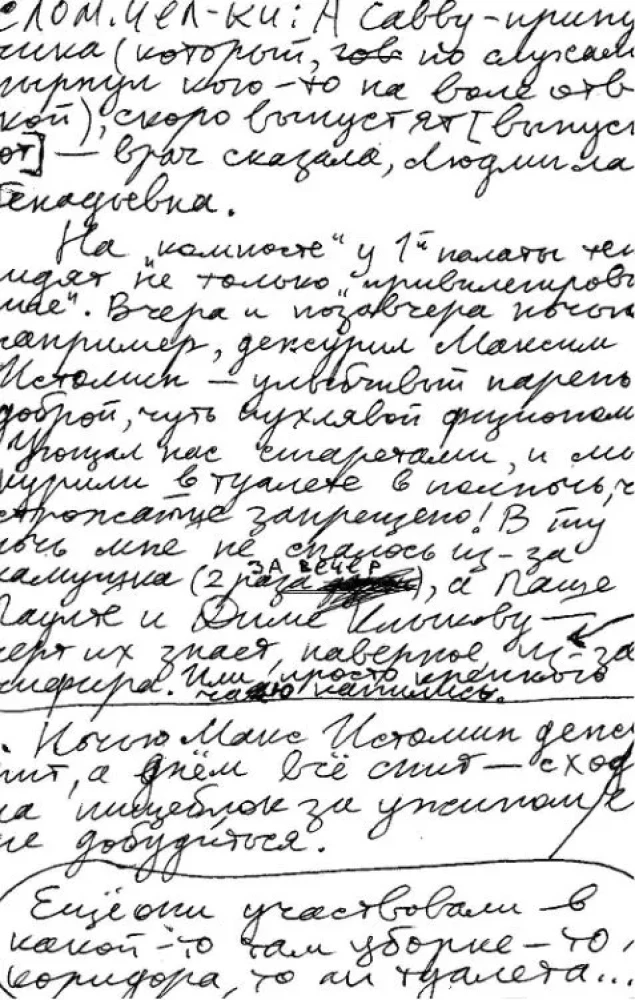 СЛОМ.ЧЕЛ-КИ: А Савву-припу
чика (который, гов по слухам
пырнул кого-то на воле отв
кой), скоро выпустят [выпус
ют] — врач сказала, Людмила
Генадьевна.
На „компосте" у 1й палаты теп
сидят не только „привилегиров
ные". Вчера и позавчера ночью
например, дежурил Максим
Истомин — улыбчивый парень
доброй, чуть пухлявой физионом
Угощал нас сигаретами, и мы
курили в туалете в полночь, ч
строжайше запрещено! В ту
ночь мне не спалось из-за
камушка (2 раза ЗА ВЕЧЕР), а Паше
Паулте и Диме Клыкову —
черт их знает, наверное, из-за
чифира. Или просто крепкого
чаю напились.
. Ночью Макс Истомин деж
рит, а днём всё спит — сход
на пищеблок за ужином е
не добудиться.
Ещё они участвовали в
какой-то там уборке — то
(коридора, то ли туалета...